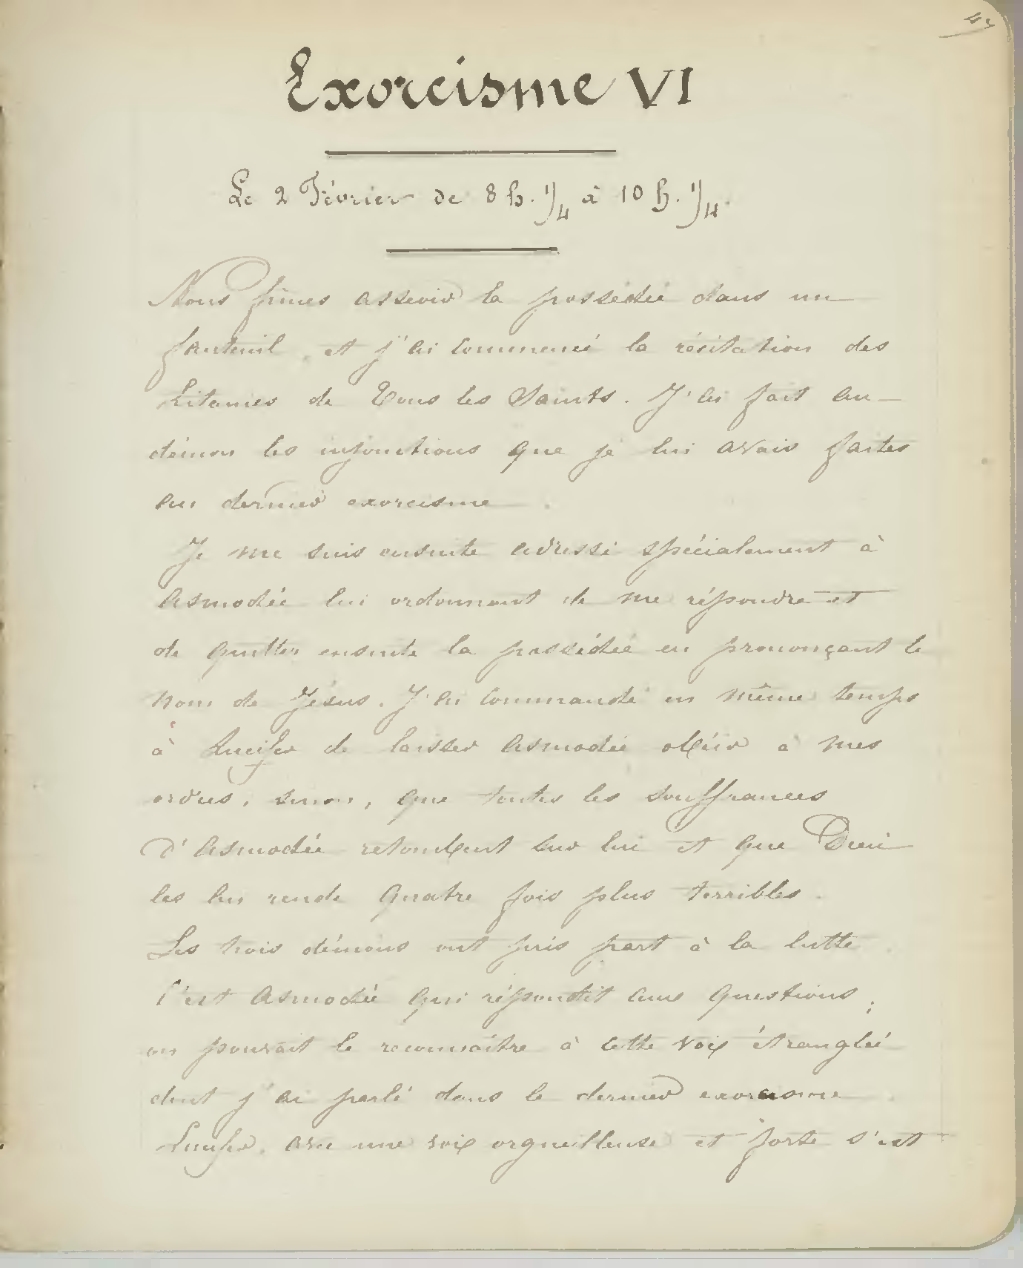 Exorcisme VI
Le 2 Février de 8 h. 1/4 à 10 h. 1/4.
Nous fîmes asseoir la possédée dans un
fauteuil, et j'ai commencé la récitation des
Litanies de Tous les Saints. J'ai fait au
démon les injonctions que je lui avais faites
au dernier exorcisme.
Je me suis ensuite adressé spécialement à
Asmodée lui ordonnant de me répondre et
de quitter ensuite la possédée en prononçant le
nom de Jésus. J'ai commandé en même temps
à Lucifer de laisser Asmodée obéir à mes
ordres, sinon, que toutes les souffrances
d'Asmodée retombent sur lui et que Dieu
les lui rende quatre fois plus terribles.
Les trois démons ont pris part à la lutte.
C'est Asmodée qui répondit aux questions;
on pouvait le reconnaître à cette voix étranglée
dont j'ai parlé dans le dernier exorcisme.
Lucifer, avec une voix orgueilleuse et forte s'est